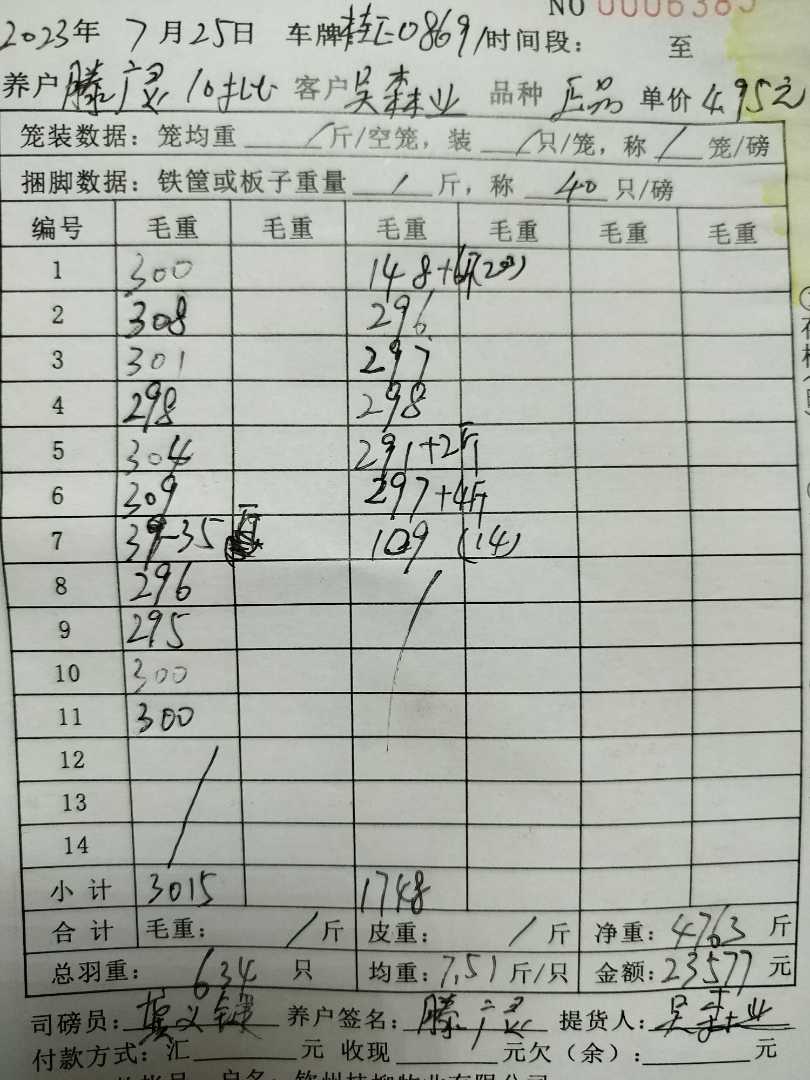 NO 0006385
2023年 7月25日 车牌桂E08691时间段: 至
养户 滕广灵 10批 客户 吴森业 品种 正品 单价 4.95元
笼装数据: 笼均重 / 斤/空笼, 装 / 只/笼, 称 / 笼/磅
捆脚数据: 铁筐或板子重量 / 斤, 称 40 只/磅
编号 毛重 毛重 毛重 毛重 毛重 毛重
1 300 148+6斤(20)
2 308 296
3 301 297
4 298 298
5 304 291+2斤
6 309 297+4斤
7 39-35斤 109 (14)
8 296
9 295
10 300
11 300
12
13
14
小计 3015 1748
合计 毛重: / 斤 皮重: / 斤 净重: 4763 斤
总羽重: 634 只 均重: 7.51 斤/只 金额: 23577 元
司磅员: 养户签名: 滕广灵 提货人: 吴森业
付款方式: 汇 元 收现 元欠(余): 元